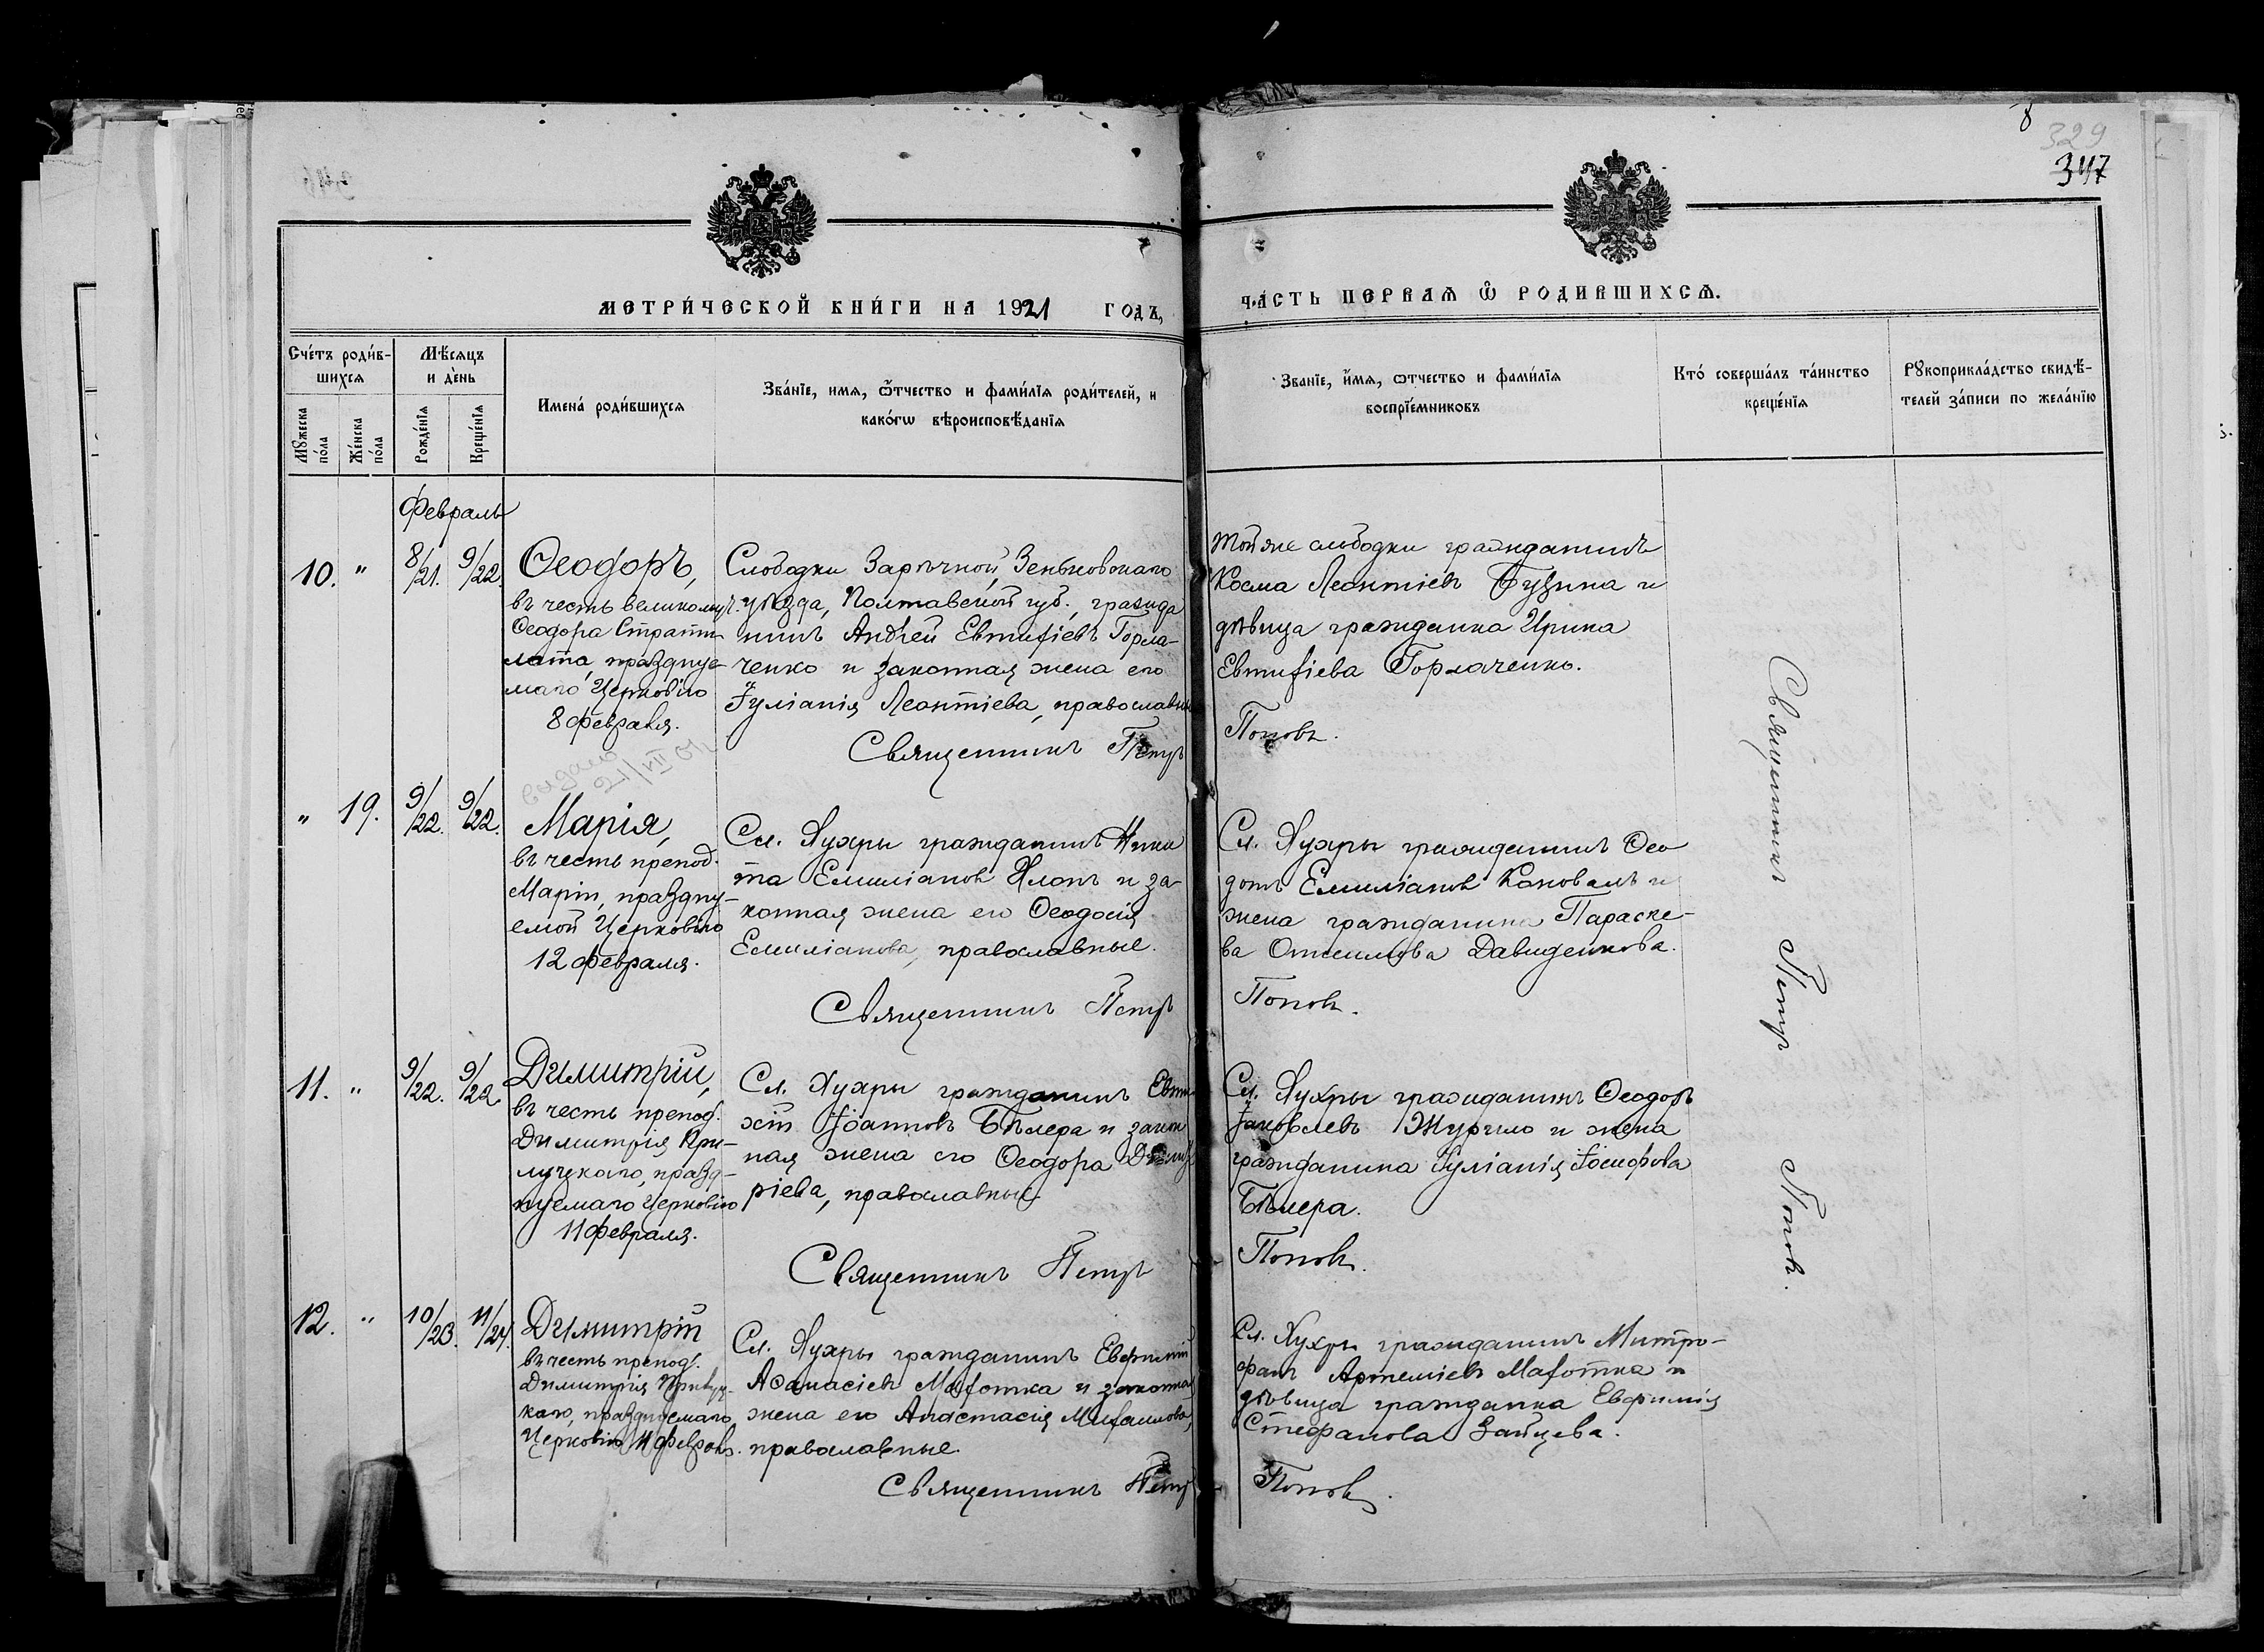 8
329
347
МЕТРИ́ЧЕСКОЙ КНИ́ГИ НА 1921 ГОДЪ,
ЧА́СТЬ ПЕРВАѦ Ѽ РОДИВШИХСѦ.
Сче́тъ роди́в-
шихсѧ
Мꙋжеска по́ла
Же́нска по́ла
Мѣ́сѧцъ
и де́нь
Рожде́нїѧ
Креще́нїѧ
Имена́ роди́вшихсѧ
Зва́нїе, имѧ, ѿтчество и фами́лїѧ роди́телей, и
како́гѡ вѣроисповѣ́данїѧ
Зва́нїе, и́мѧ, ѿтчество и фами́лїѧ
воспрїе́мниковъ
Кто́ соверша́лъ та́инство
креще́нїѧ
Рꙋкоприкла́дство свидѣ́-
телей за́писи по жела́нїю
Февраль
10. " 8/21. 9/22.
Ѳеодоръ,
въ честь великомуч.
Ѳеодора Страти-
лата, праздпуе-
маго Церковію
8 февраля.
Слободки Зарѣчной, Зеньковскаго
уѣзда, Полтавской губ., гражда
нинъ Андрей Евтихіевъ Горла-
ченко и законная жена его
Іуліанія Леонтіева, православн
Священникъ Петръ
Тойже слободки гражданинъ
Косма Леонтіевъ Бузина и
дѣвица гражданка Ирина
Евтихіева Горлаченко.
Поповъ.
видано
21/VII
" 19. 9/22. 9/22.
Марія,
въ честь препод.
Маріи, праздну-
емой Церковію
12 февраля.
Сл. Хухры гражданинъ Ники
та Емиліановъ Клопъ и за-
конная жена его Ѳеодосія
Емиліанова, православные.
Священникъ Петръ
Сл. Хухры гражданинъ Ѳео
дотъ Емиліановъ Коновалъ и
жена гражданина Параске-
ва Давиденкова.
Поповъ.
11. " 9/22. 9/22.
Димитрій,
въ честь препод.
Димитрія При-
луцкаго, празд-
нуемаго Церковію
11 февраля.
Сл. Хухры гражданинъ Евти
хій Іоанновъ Бѣлера и закон
ная жена его Ѳеодора Димит
ріева, православные.
Священникъ Петръ
Сл. Хухры гражданинъ Ѳеодоръ
Іаковлевъ Журыло и жена
гражданина Іуліанія Іосифова
Бѣлера.
Поповъ.
12. " 10/23. 11/24.
Димитрій
въ честь препод.
Димитрія Прилуц-
каго, празднуемаго
Церковію 11 февраля.
Сл. Хухры гражданинъ Евфимій
Аѳанасіевъ Махотка и законная
жена его Анастасія Михаилова,
православные.
Священникъ Петръ
Сл. Хухры гражданинъ Митро-
фанъ Артеміевъ Махотка и
дѣвица гражданка Евфимія
Стефанова Зайцева.
Поповъ.
Священникъ Петръ Поповъ.